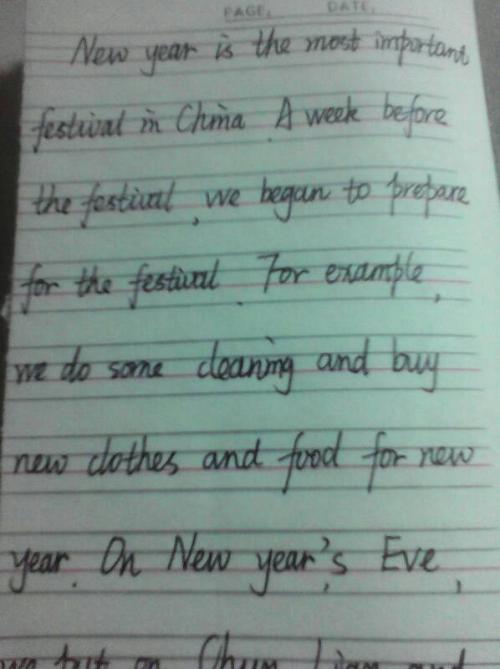 PAGE. DATE.
New year is the most important
festival in China. A week before
the festival, we began to prepare
for the festival. For example,
we do some cleaning and buy
new clothes and food for new
year. On New year's Eve,
we put on Chun Lian and